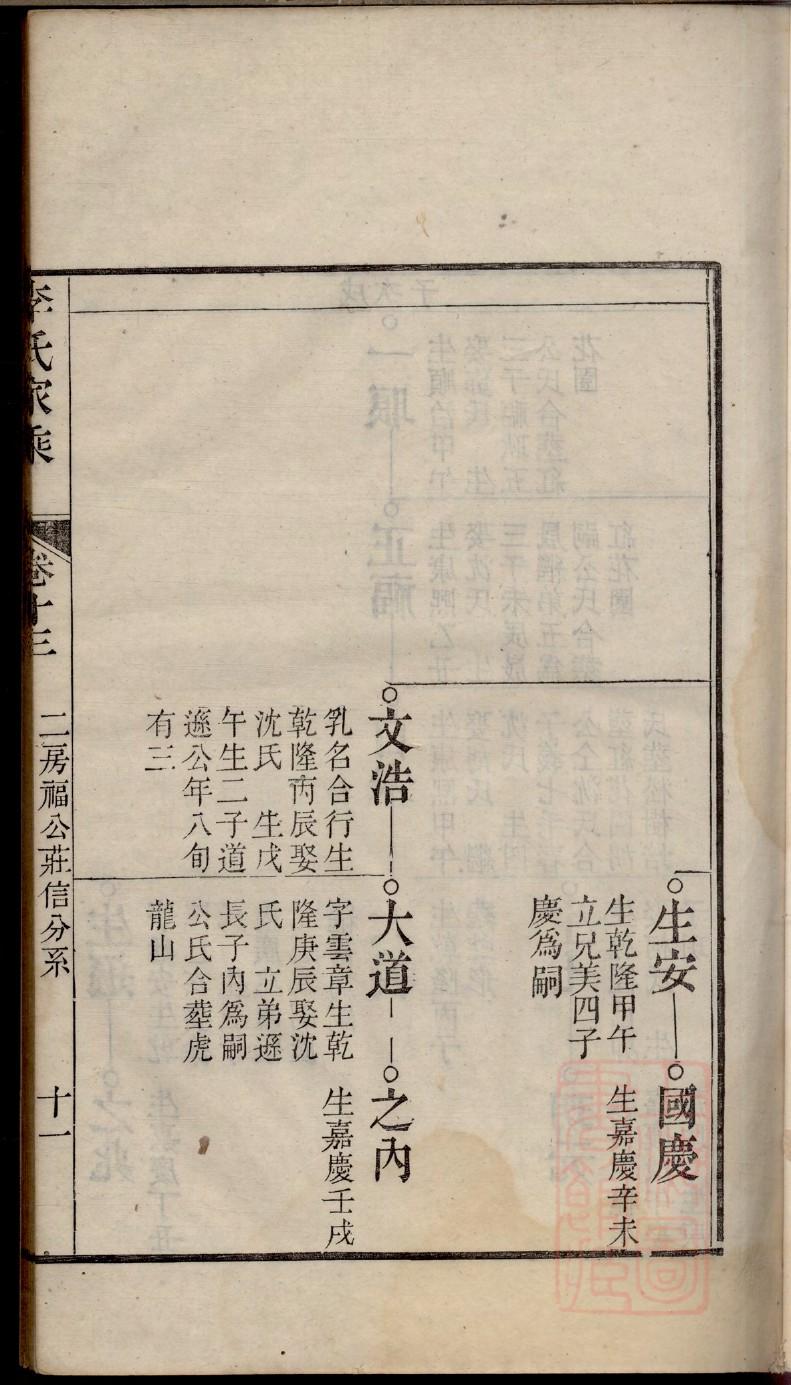 生安
生乾隆甲午
立兄美四子
慶爲嗣
國慶
生嘉慶辛未
文浩
乳名合行生
乾隆丙辰娶
沈氏 生戊
午生二子道
遜公年八旬
有三
大道
字雲章生乾
隆庚辰娶沈
氏 立弟遜
長子內爲嗣
公氏合葬虎
龍山
之內
生嘉慶壬戌
李氏家乘
卷十三
二房福公莊信分系
十一